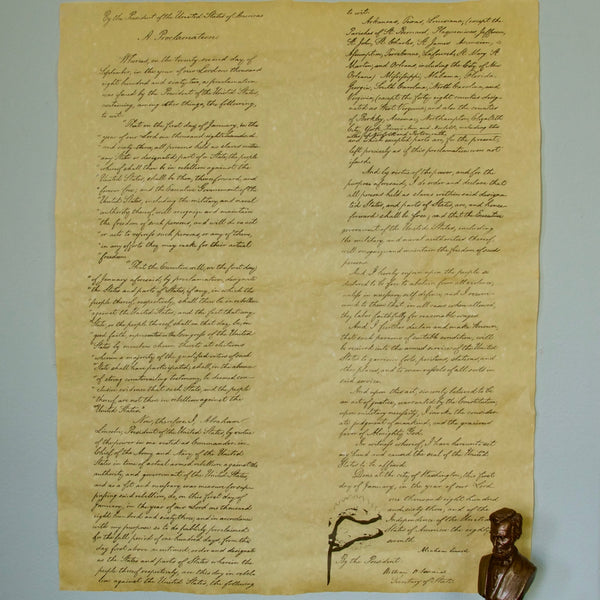 By the President of the United States of America:
A Proclamation.
Whereas, on the twenty-second day of
September, in the year of our Lord one thousand
eight hundred and sixty two, a proclamation
was issued by the President of the United States,
containing, among other things, the following,
to wit:
"That on the first day of January, in the
"year of our Lord one thousand eight hundred
"and sixty-three, all persons held as slaves within
"any State or designated part of a State, the people
"whereof shall then be in rebellion against the
"United States, shall be then, thenceforward, and
"forever free; and the Executive Government of the
"United States, including the military and naval
"authority thereof, will recognize and maintain
"the freedom of such persons, and will do no act
"or acts to repress such persons, or any of them,
"in any efforts they may make for their actual
"freedom.
"That the Executive will, on the first day
"of January aforesaid, by proclamation, designate
"the States and parts of States, if any, in which the
"people thereof, respectively, shall then be in rebellion
"against the United States; and the fact that any
"State, or the people thereof, shall on that day be, in
"good faith, represented in the Congress of the United
"States by members chosen thereto at elections
"wherein a majority of the qualified voters of such
"State shall have participated, shall, in the absence
"of strong countervailing testimony, be deemed con-
"clusive evidence that such State, and the people
"thereof, are not then in rebellion against the
"United States."
Now, therefore I, Abraham
Lincoln, President of the United States, by virtue
of the power in me vested as Commander-in-
Chief, of the Army and Navy of the United
States in time of actual armed rebellion against the
authority and government of the United States,
and as a fit and necessary war measure for sup-
pressing said rebellion, do, on this first day of
January, in the year of our Lord one thousand
eight hundred and sixty three, and in accordance
with my purpose so to do publicly proclaimed
for the full period of one hundred days, from the
day first above mentioned, order and designate
as the States and parts of States wherein the
people thereof respectively, are this day in rebel-
lion against the United States, the following,
to wit:
Arkansas, Texas, Louisiana, (except the
Parishes of St. Bernard, Plaquemines, Jefferson,
St. John, St. Charles, St. James, Ascension,
Assumption, Terrebonne, Lafourche, St. Mary, St.
Martin, and Orleans, including the City of New
Orleans) Mississippi, Alabama, Florida,
Georgia, South Carolina, North Carolina, and
Virginia, (except the forty eight counties desig-
nated as West Virginia, and also the counties
of Berkley, Accomac, Northampton, Elizabeth
City, York, Princess Ann, and Norfolk, including the
cities of Norfolk and Portsmouth
and which excepted parts are, for the present,
left precisely as if this proclamation were not
issued.
And by virtue of the power, and for the
purpose aforesaid, I do order and declare that
all persons held as slaves within said designa-
ted States, and parts of States, are, and hence-
forward shall be free; and that the Executive
government of the United States, including
the military and naval authorities thereof,
will recognize and maintain the freedom of said
persons.
And I hereby enjoin upon the people so
declared to be free to abstain from all violence,
unless in necessary self-defence; and I recom-
mend to them that, in all cases when allowed,
they labor faithfully for reasonable wages.
And I further declare and make known,
that such persons of suitable condition, will
be received into the armed service of the United
States to garrison forts, positions, stations, and
other places, and to man vessels of all sorts in
said service.
And upon this act, sincerely believed to be
an act of justice, warranted by the Constitution,
upon military necessity, I invoke the consider-
ate judgment of mankind, and the gracious
favor of Almighty God.
In witness whereof, I have hereunto set
my hand and caused the seal of the United
States to be affixed.
Done at the city of Washington, this first
day of January, in the year of our Lord
one thousand eight hundred
and sixty three, and of the
Independence of the United
States of America the eighty-
seventh.
By the President:
Secretary of State